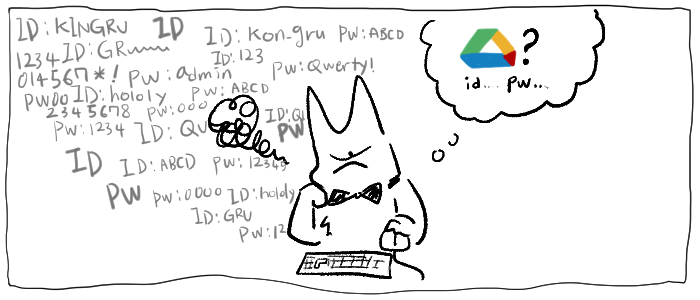 ID: KINGRU ID ID: kon-gru PW: ABCD
1234 ID: GRu
ID: 123
014567*! PW: admin PW: Qwerty!
PW00 ID: hololy PW: ABCD
2345678 PW: 000
PW: 1234 ID: QU
PW
ID ID: ABCD PW: 1234
PW PW: 0000 ID: hololy
ID: GRU
PW: 12
?
id... PW...